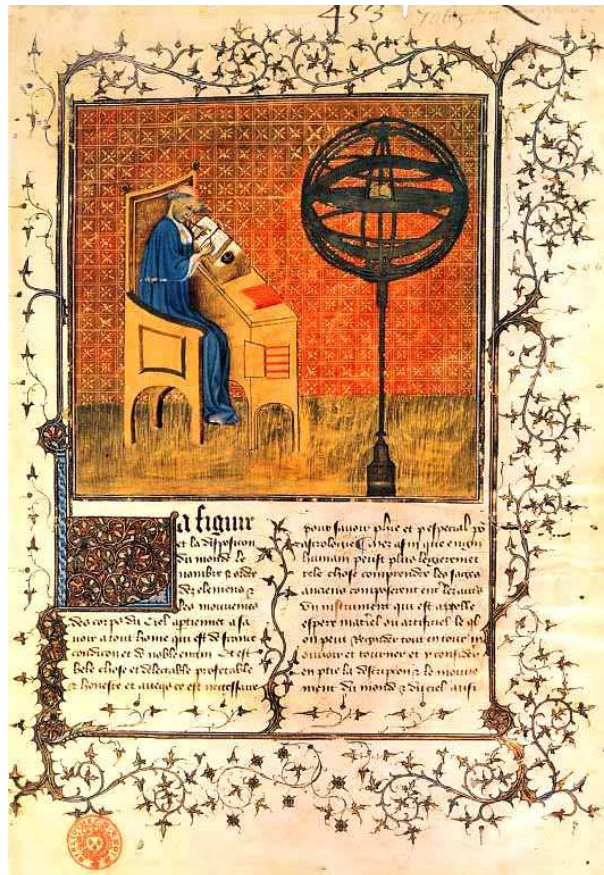 453 7065
a figur
et la disposicon
du monde le
nombre & ordre
dez elemens &
les mouuemens
des corps du ciel aptienent a sa
uoir a tout home qui est de france
condicon et de noble engin Et est
bele chose et delectable profetable
& honeste et auecqs ce est necessaire
pour sauoir phie et p especial po
astrologie afin que engin
humain peust plus legierement
tele chose comprendre les sages
anciens composerent
un instrument qui est appelle
espere materiel ou artificiel le ql
on peut regarder tout entour m
ouuoir et tourner et y considerer
en ptie la descripcon & le mouue
ment du monde & du ciel aussi